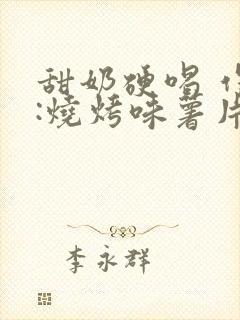 甜奶硬唱
:燒烤味薯片
李永群